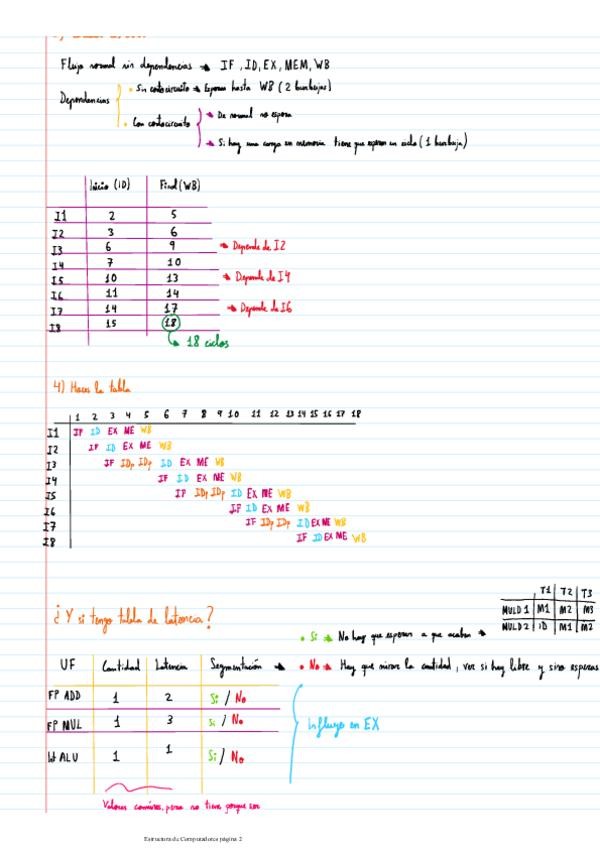 Flujo normal sin dependencias → IF, ID, EX, MEM, WB
Dependencias
• Sin cortocircuito → Esperar hasta WB (2 burbujas)
• Con cortocircuito
→ De normal no espera
→ Si hay una carga en memoria tiene que esperar un ciclo (1 burbuja)
Inicio (ID) Final (WB)
I1 2 5
I2 3 6
I3 6 9 → Depende de I2
I4 7 10
I5 10 13 → Depende de I4
I6 11 14
I7 14 17 → Depende de I6
I8 15 18
→ 18 ciclos
4) Haces la tabla
1 2 3 4 5 6 7 8 9 10 11 12 13 14 15 16 17 18
I1 IF ID EX ME WB
I2 IF ID EX ME WB
I3 IF IDp IDp ID EX ME WB
I4 IF ID EX ME WB
I5 IF IDp IDp ID EX ME WB
I6 IF ID EX ME WB
I7 IF IDp IDp ID EX ME WB
I8 IF ID EX ME WB
¿Y si tengo tabla de latencia?
T1 T2 T3
MULD 1 M1 M2 M3
MULD 2 ID M1 M2
• Si → No hay que esperar a que acaben →
UF Cantidad Latencia Segmentación → • No → Hay que mirar la cantidad, ver si hay libre y sino esperas
FP ADD 1 2 Si / No
FP MUL 1 3 Si / No
Int ALU 1 1 Si / No
Influye en EX
Valores comunes, pero no tiene porque ser
Estructura de Computadores página 2